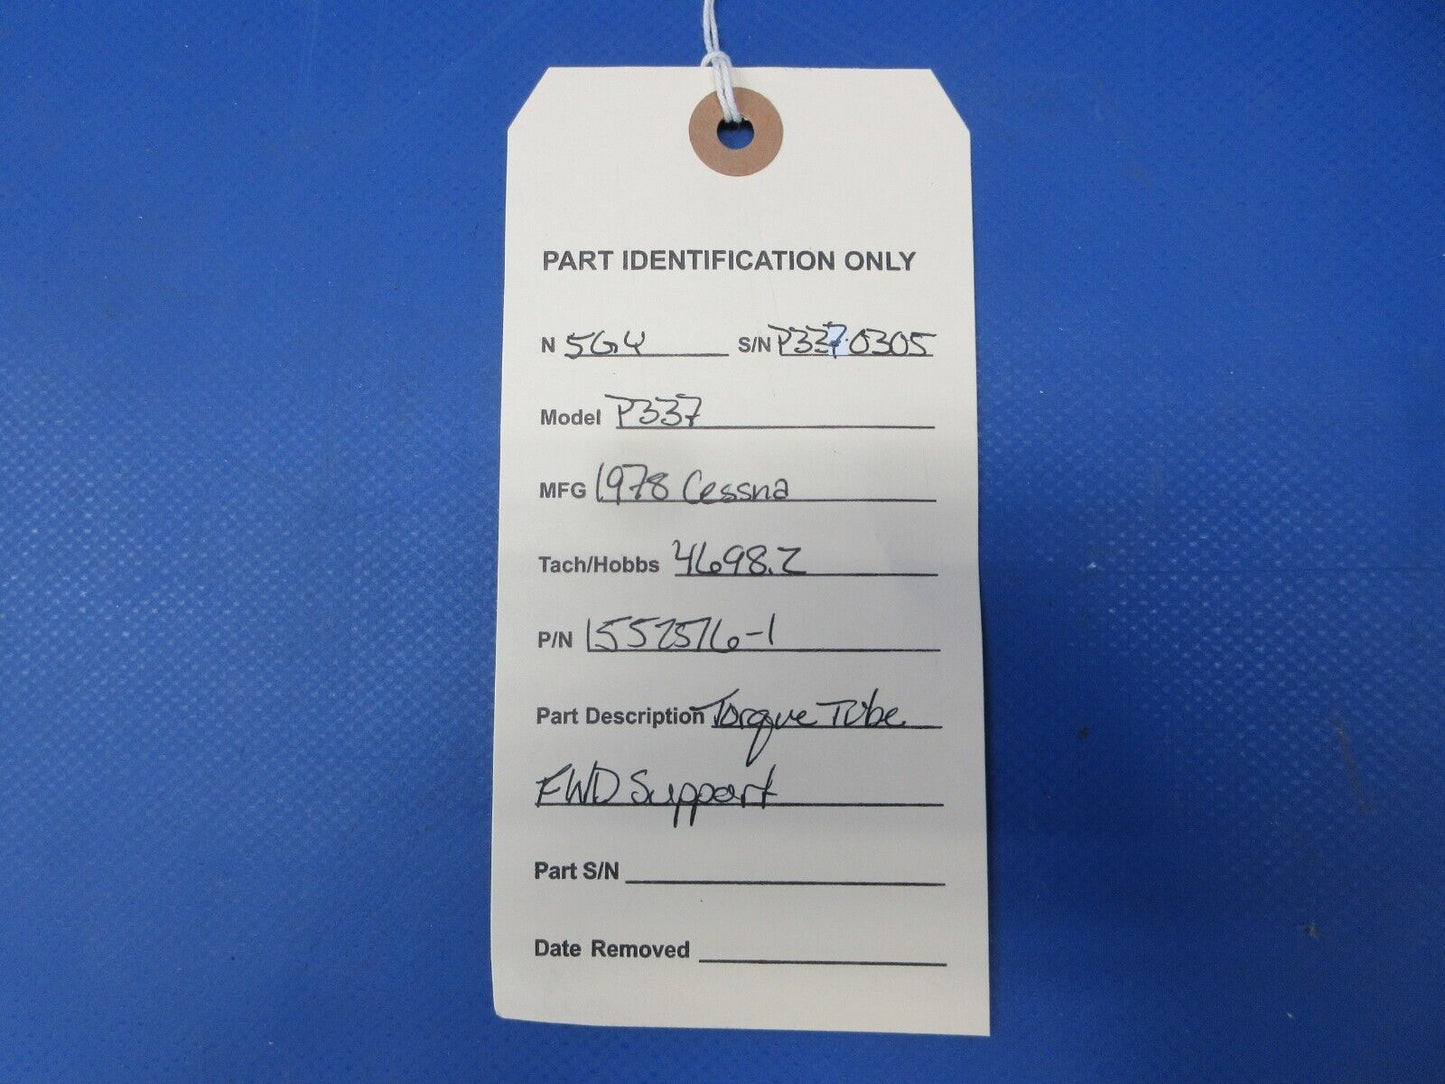 PART IDENTIFICATION ONLY
N 5GY S/N P337-0305
Model P337
MFG 1978 Cessna
Tach/Hobbs 4698.2
P/N 1552576-1
Part Description Torque Tube
FWD Support
Part S/N
Date Removed